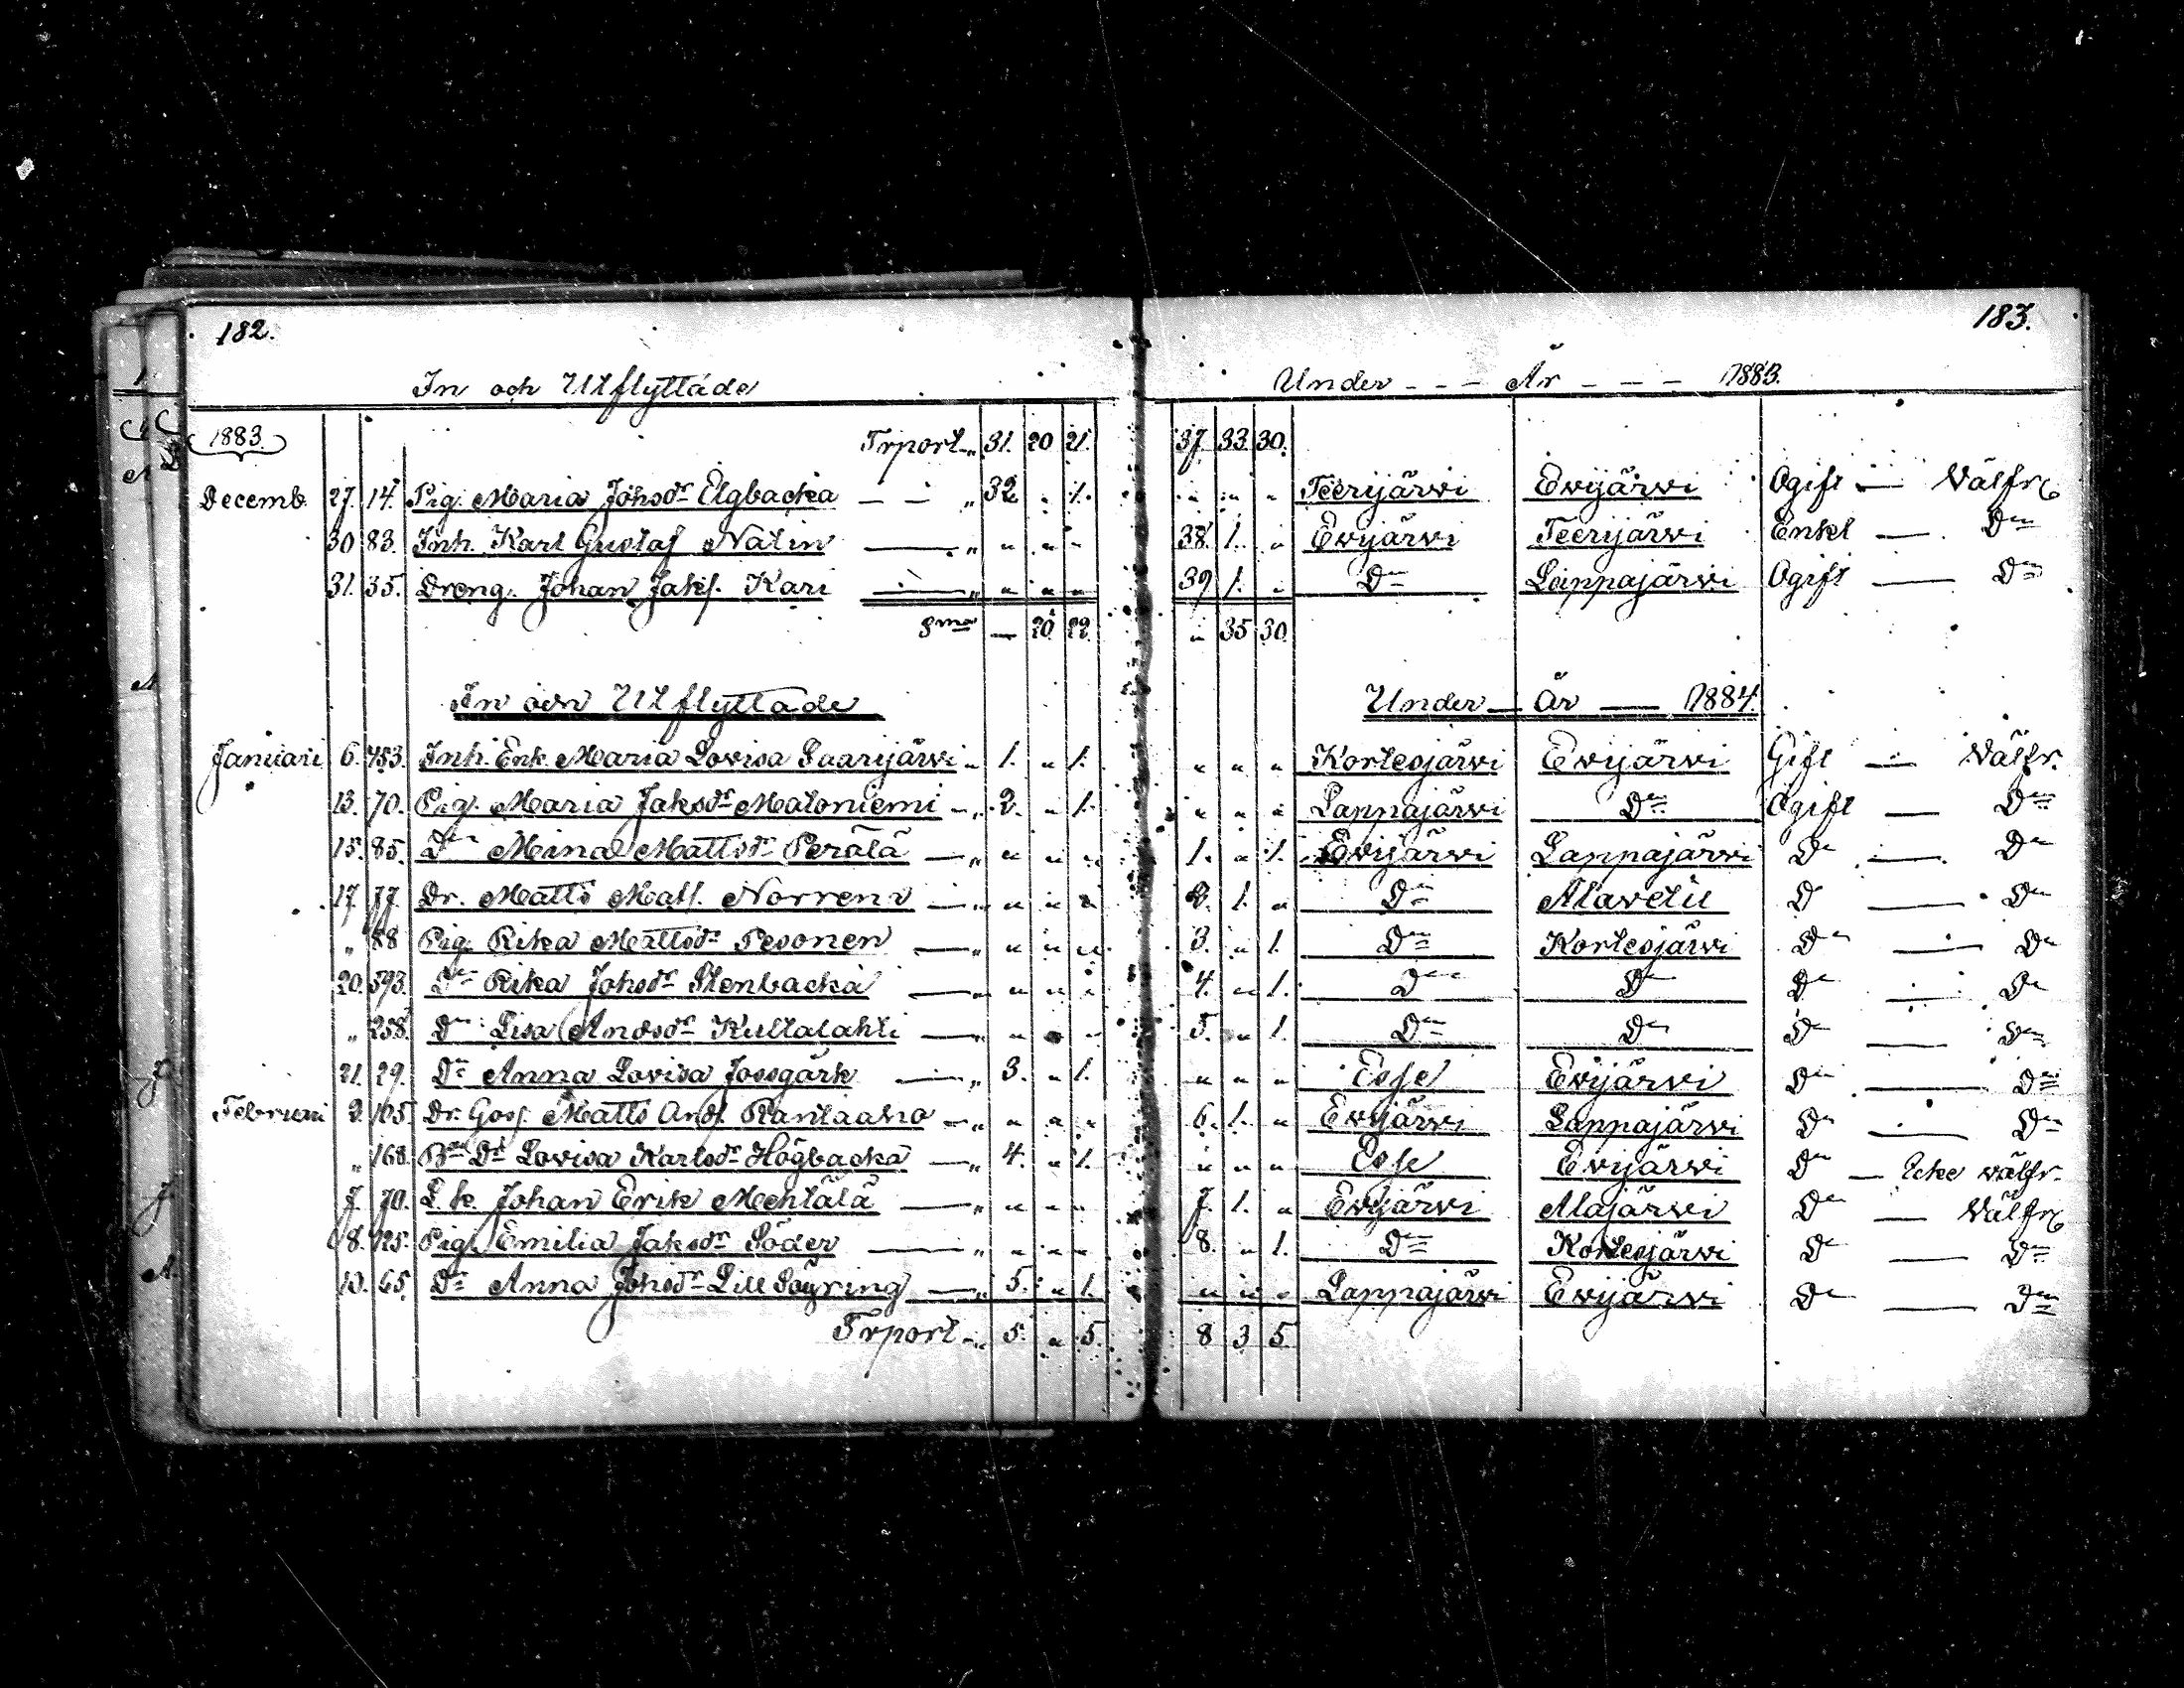 182.
183.
In och Utflyttade Under - - - År - - - 1883.
1883. Trport „ 31. 20 21. 37. 33. 30.
Decemb. 27. 14. Pig. Maria Johsdr Elgbacka — — „ 32 . 1. „ „ „ Teerijärwi Ewijärwi Ogift — Wälfr.
30 83. Inh. Karl Gustaf Natin — „ „ „ „ 38. 1. „ Ewijärwi Teerijärwi Enkl — Do
31. 35. Dreng. Johan Jakf. Kari — „ „ „ „ 39 1. „ Do Lappajärwi Ogift — Do
Sma — 20. 22. „ 35 30.
In och Utflyttade Under — År — 1884.
Januari 6. 453. Inh. Enk. Maria Lovisa Saarijärwi „ 1. „ 1. „ „ „ Kortesjärwi Ewijärwi Gift — Wälfr.
13. 70. Pig. Maria Jaksdr Matoniemi — „ 2. „ 1. „ „ „ Lappajärwi Do Ogift — Do
15. 85. Do Mina Mattsdr Perälä — „ „ „ „ 1. „ 1. Ewijärwi Lappajärwi Do — Do
17. 77. Dr. Matts Matf. Norrena — „ „ „ „ 2. 1. „ Do Alavetii D — Do
„ 88 Pig. Rika Mattsdr Pesonen — „ „ „ „ 3. „ 1. Do Kortesjärwi Do — Do
20. 593. Do Rika Johsdr Stenbacka — „ „ „ „ 4. „ 1. Do Do Do — Do
„ 258. Do Lisa Andsdr Kultalahti — „ „ „ „ 5. „ 1. Do Do Do — Do
21. 29. Do Anna Lovisa Jossgärk — „ 3. „ 1. „ „ „ Esse Ewijärwi Do — Do
Februari 2. 105. Dr. Goss. Matts Andf. Rantaaho — „ „ „ „ 6. 1. „ Ewijärwi Lappajärwi Do — Do
„ 168. Lovisa Karlsdr Högbacka — „ 4. „ 1. „ „ „ Esse Ewijärwi Do — Icke wälfr.
7. 70. L. k. Johan Erik Mentälä — „ „ „ „ 7. 1. „ Ewijärwi Alajärwi Do — Wälfr.
8. 125. Pig. Emilia Jaksdr Söder — „ „ „ „ 8. „ 1. Do Kortesjärwi Do — Do
10. 65. Do Anna Johsdr Lill Söyring — „ 5. „ 1. „ „ „ Lappajärwi Ewijärwi Do — Do
Trport „ 5. „ 5. 8 3 5.